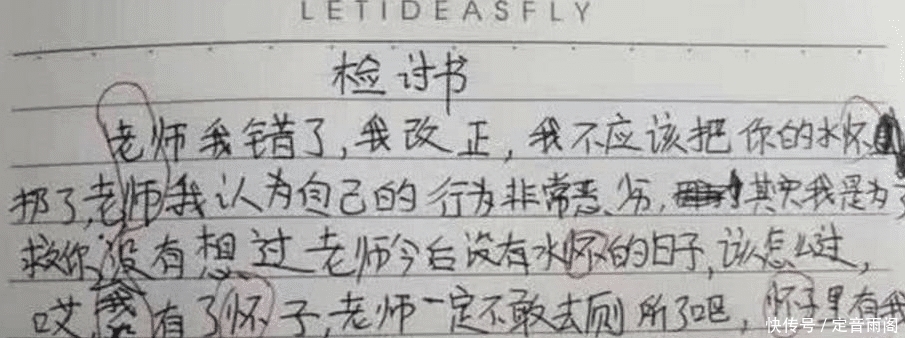 LETIDEASFLY
检讨书
老师我错了,我改正,我不应该把你的水怀
挪了,老师我认为自己的行为非常恶劣,其实我是为了
救你没有想过老师今后没有水怀的日子,该怎么过,
哎 我 有了怀子,老师一定不敢去厕所了吧,怀子里有我
快传号/定音雨阁